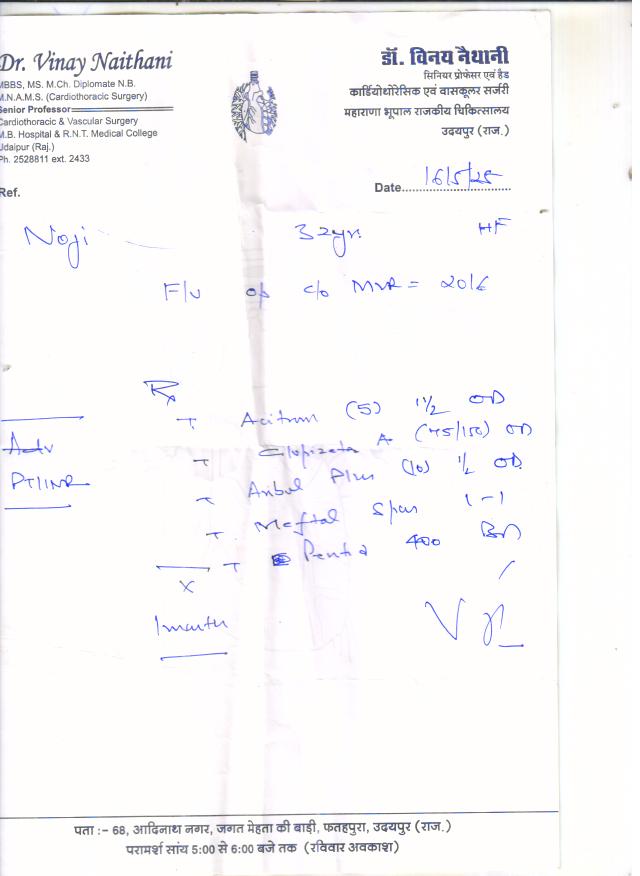 Dr. Vinay Naithani
MBBS, MS. M.Ch. Diplomate N.B.
M.N.A.M.S. (Cardiothoracic Surgery)
Senior Professor
Cardiothoracic & Vascular Surgery
M.B. Hospital & R.N.T. Medical College
Udaipur (Raj.)
Ph. 2528811 ext. 2433
डॉ. विनय नैथानी
सिनियर प्रोफेसर एवं हैड
कार्डियोथोरेसिक एवं वासकूलर सर्जरी
महाराणा भूपाल राजकीय चिकित्सालय
उदयपुर (राज.)
Ref.
Date 16/5/25
Noji 32yr.
F/U op c/o MVR = 2016
Rx
T Acitrom (5) 1 1/2 OD
T A (75/150) OD
T Plus (10) 1/2 OD
T Meftal Spas 1-1
T 400
Adv
PT/INR
x
1 month
पता :- 68, आदिनाथ नगर, जगत मेहता की बाड़ी, फतहपुरा, उदयपुर (राज.)
परामर्श सांय 5:00 से 6:00 बजे तक (रविवार अवकाश)